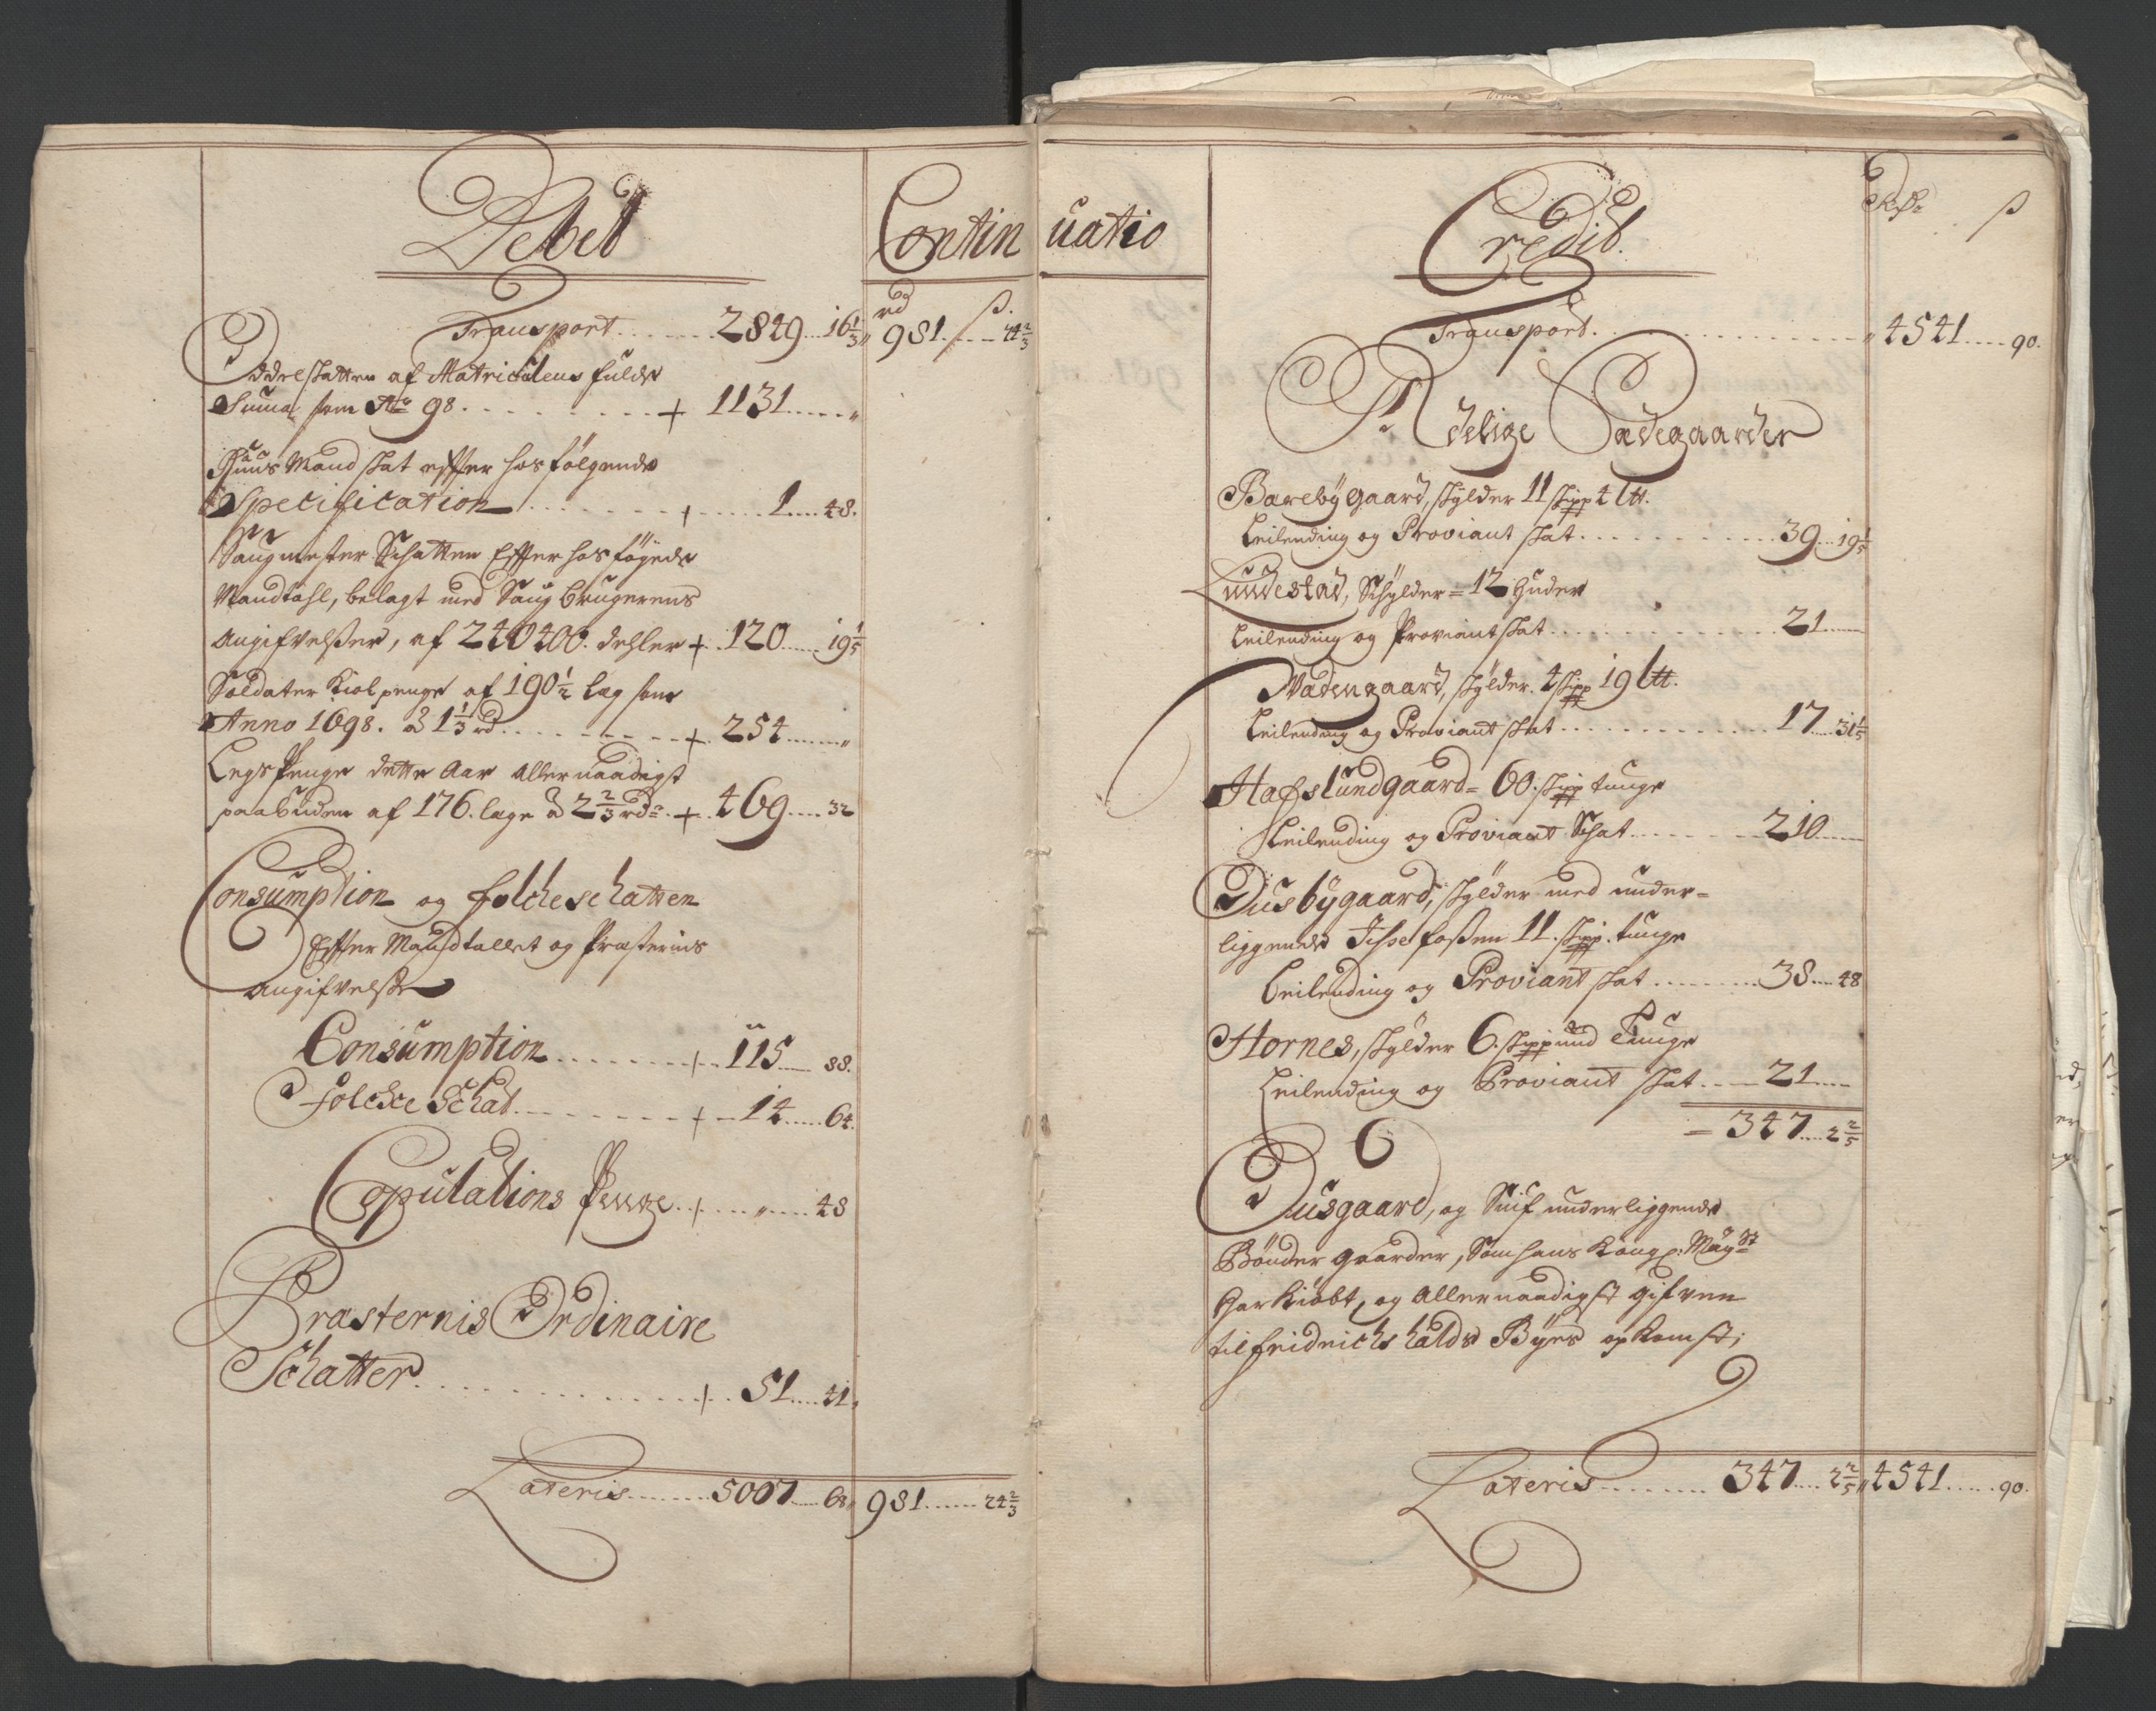 Debet
Continuatio
rd ß.
Transport ...... 2849 ... 16 1/3 „ 981 ..... 24 2/3
Oddelskatten af Matriculens fulde
Suma som Ao 98 ......... + 1131 ..... „
Huus Mand skat efter hosfølgende
Specification ........ + ..... 1 .... 48.
Saugmester Schatten Efter hosføyede
Mandtahl, belagt med Saug brugerens
Angifvelßer, af 240400. dehler + .. 120 ..... 19 1/5
Soldater Kiolpenge af 190 1/2 læg som
Anno 1698. à 1 1/3 rd ......... + 254 ...... „
Legs Penge dette Aar Allernaadigst
paabuden af 176. læge à 2 2/3 rdr. + .. 469 .... 32
Consumption og folcheschatten
Efter Mandtallet og Præsternis
Angifvelße
Consumption ....... + .. 115 .... 88.
Folcke Schat ......... + .. 14 ..... 64.
Copulations Penge .. + .... „ ..... 48
Præsternis Ordinaire
Schatter ............. + .. 51 .... 41 „
Lateris ....... 5007 .... 68 „ 981 ...... 24 2/3
Credit.
Rdr ß
Transport. ............ „ 4541 .... 90.
Adelige Sædegaarder
Barebÿgaard, skylder 11 skipp 4 Ltt.
Leilending og Proviant skat .......... 39 ... 19 1/5
Lundestad, Schylder = 12 Huder
Leilending og Proviantskat ........... 21 ....
Wadengaard, skylder. 4 skipp 19 Ltt.
Leilending og Proviant skat ........... 17 .... 31 1/5
Hafslundgaard = 60. skipp tunge
Leilending og Proviant Schat ........ 210 .....
Tusbÿgaard, skylder med under-
liggende foßen 11. skipp. tunge
Leilending og Proviant skat ........ 38 .... 48
Hornes, skylder 6. skippund Tunge
Leilending og Proviant skat .. 21 ....
= 347 ... 2 2/5
Tusgaard, og underliggende
Bønder gaarder, Som hans Kongl: Mayst
har kiøbt, og Allernaadigst gifven
til fridrichshalds Byes opkomst;
Lateris ........ 347 .... 2 2/5 „ 4541 ..... 90.